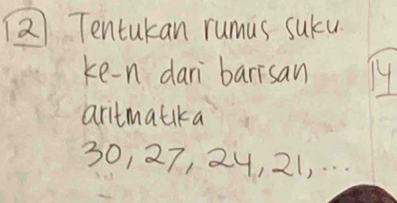 12 Tentukan rumus suku
ke-n dari barisan
aritmatika
30, 27, 24, 21, ...
14